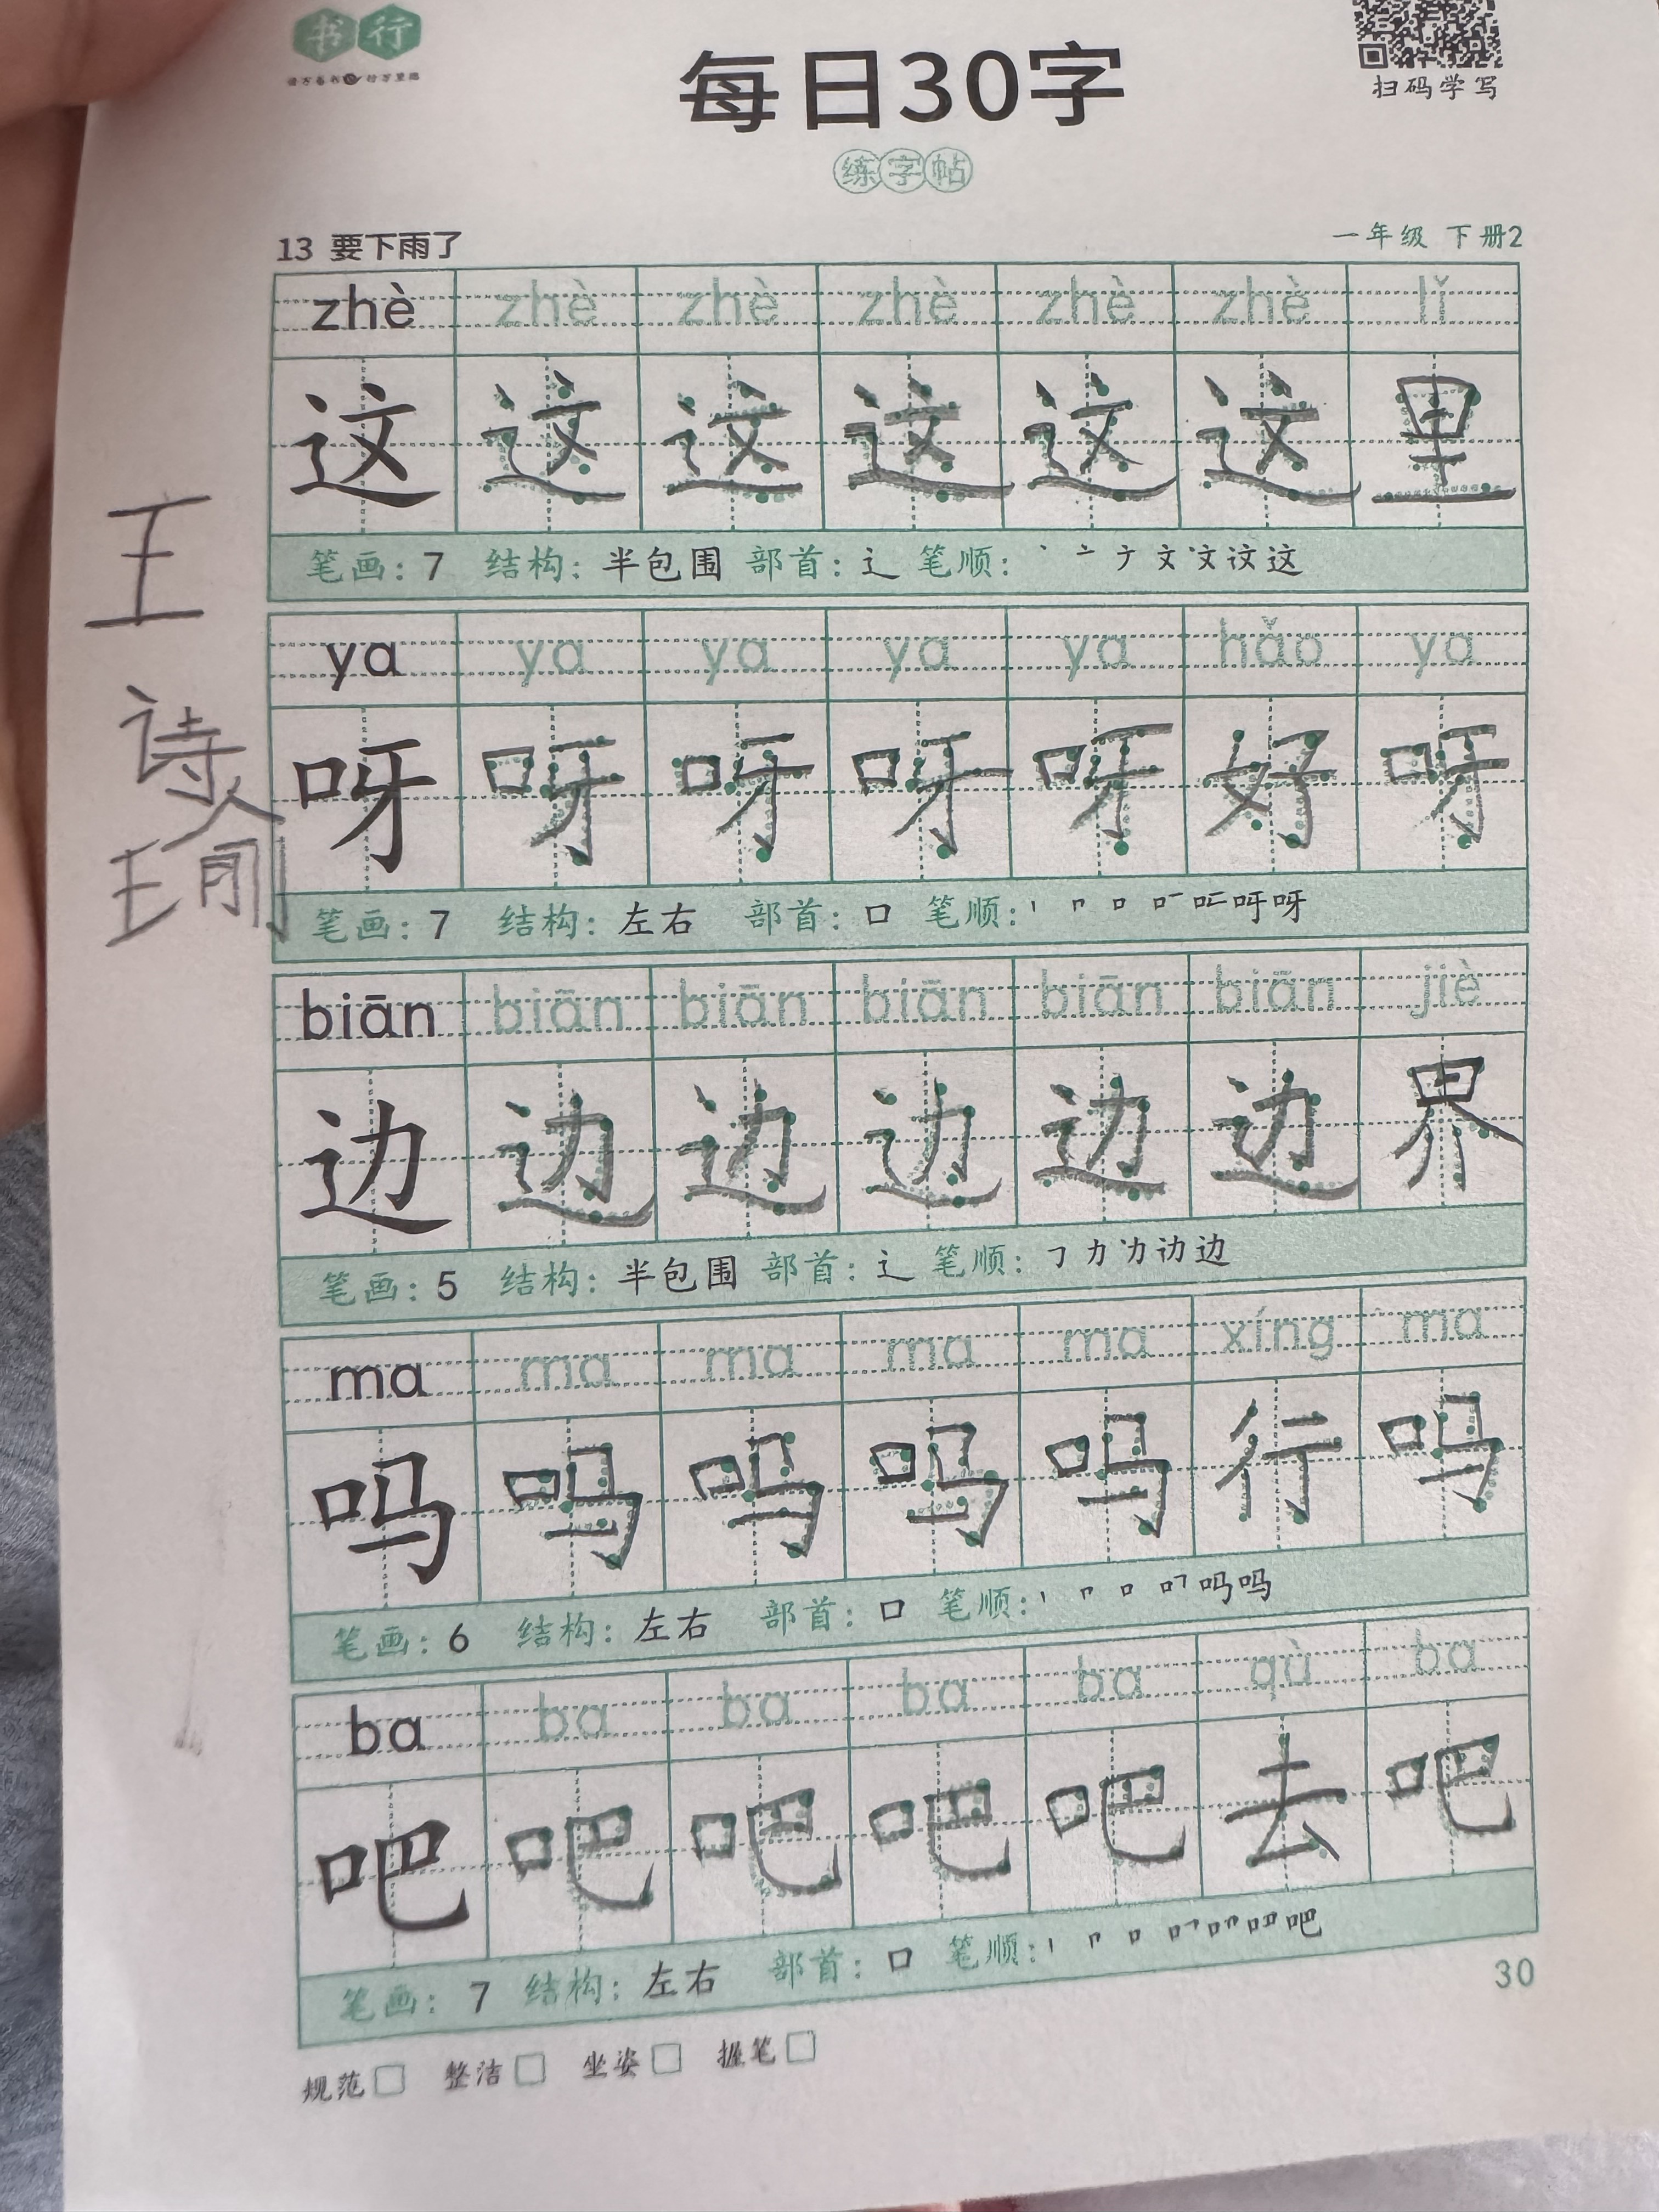 书行
读万卷书 行万里路
扫码学写
每日30字
练字帖
13 要下雨了 一年级 下册2
zhè zhè zhè zhè zhè zhè lǐ
这 这 这 这 这 这 里
笔画：7 结构：半包围 部首：辶 笔顺：
王
诗
瑜
ya ya ya ya ya hǎo ya
呀 呀 呀 呀 呀 好 呀
笔画：7 结构：左右 部首：口 笔顺：
biān biān biān biān biān biān jiè
边 边 边 边 边 边 界
笔画：5 结构：半包围 部首：辶 笔顺：
ma ma ma ma ma xíng ma
吗 吗 吗 吗 吗 行 吗
笔画：6 结构：左右 部首：口 笔顺：
ba ba ba ba ba qù ba
吧 吧 吧 吧 吧 去 吧
笔画：7 结构：左右 部首：口 笔顺：
30
规范□ 整洁□ 坐姿□ 握笔□